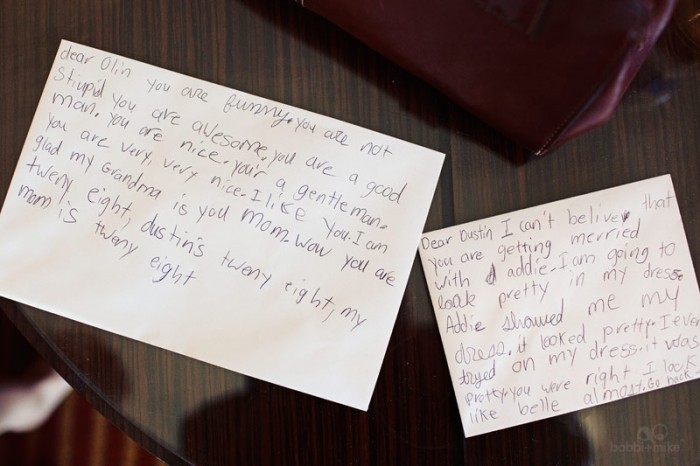 dear Olin you are funny. you are not
Stiupid you are awesome. you are a good
man. you are nice. your a gentleman.
you are very, very nice. I like you. I am
glad my Grandma is you mom. wow you are
tweny eight, dustin's tweny eight, my
mom is tweny eight
Dear Dustin I can't belive that
you are getting merried
with addie. I am going to
look pretty in my dress
Addie showed me my
dress. it looked pretty. I even
tryed on my dress. it was
pretty. you were right I look
like belle almost. Go back
bobbi+mike